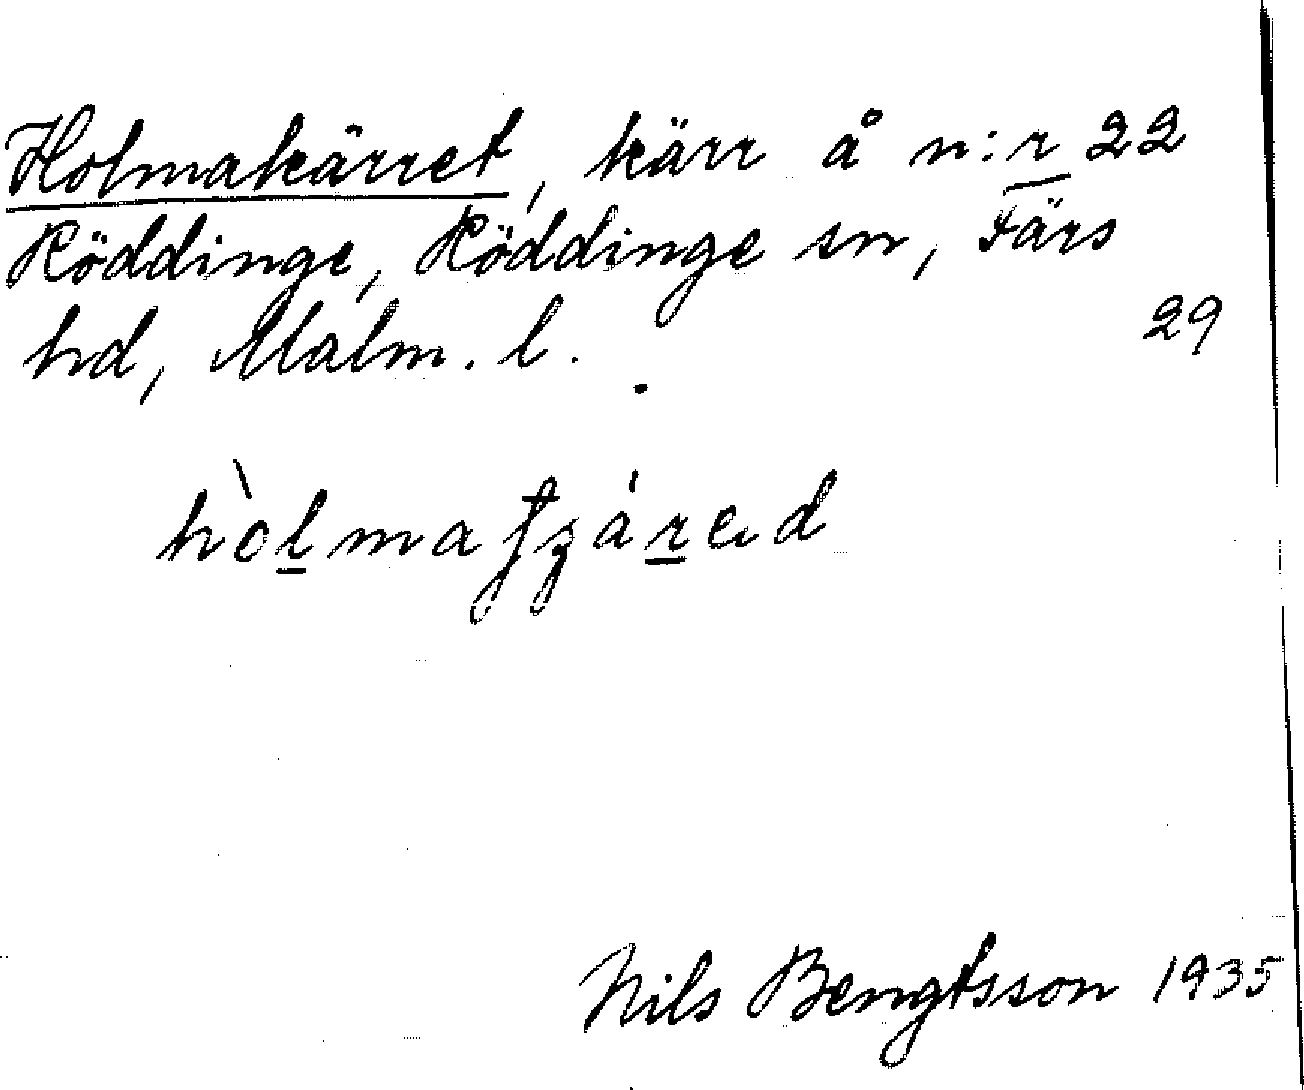 Holmakärret, kärr å n:r 22
Röddinge, Röddinge sn, Färs
hd, Malm. l.
29
Nils Bengtsson 1935